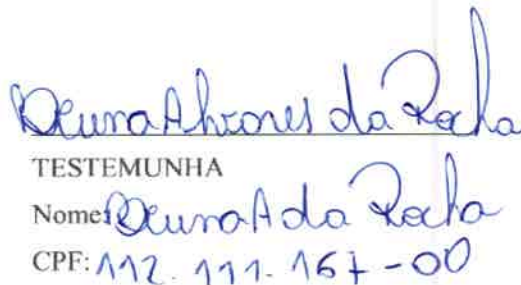 Alvares da Rocha
TESTEMUNHA
Nome: A da Rocha
CPF: 112.111.167-00